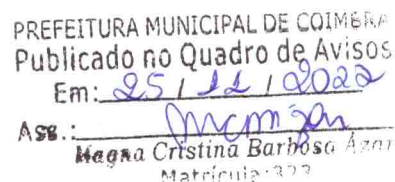 PREFEITURA MUNICIPAL DE COIMBRA
Publicado no Quadro de Avisos
Em: 25 / 11 / 2022
Ass.:
Magna Cristina Barbosa Azar
Matrícula: 323